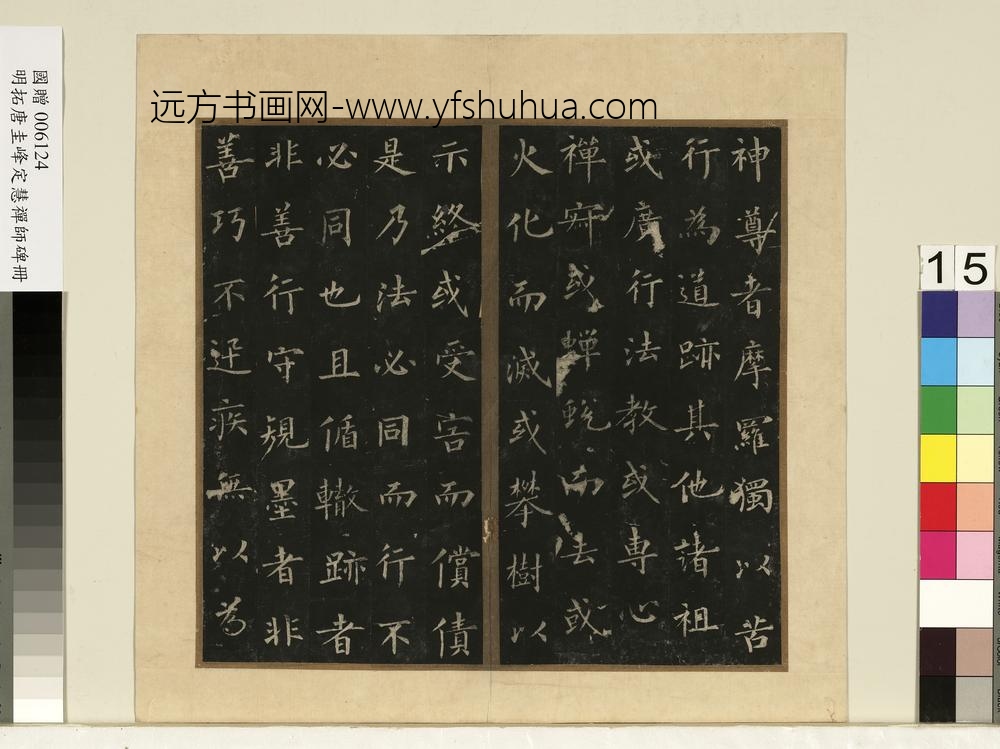 远方书画网-www.yfshuhua.com
國贈 006124
明拓唐圭峰定慧禪師碑冊
15
神尊者摩羅獨以苦
行為道跡其他諸祖
或廣行法教或專心
禪寂或蟬蛻而去或
火化而滅或攀樹以
示終或受害而償債
是乃法必同而行不
必同也且循轍跡者
非善行守規墨者非
善巧不迅疾無以為